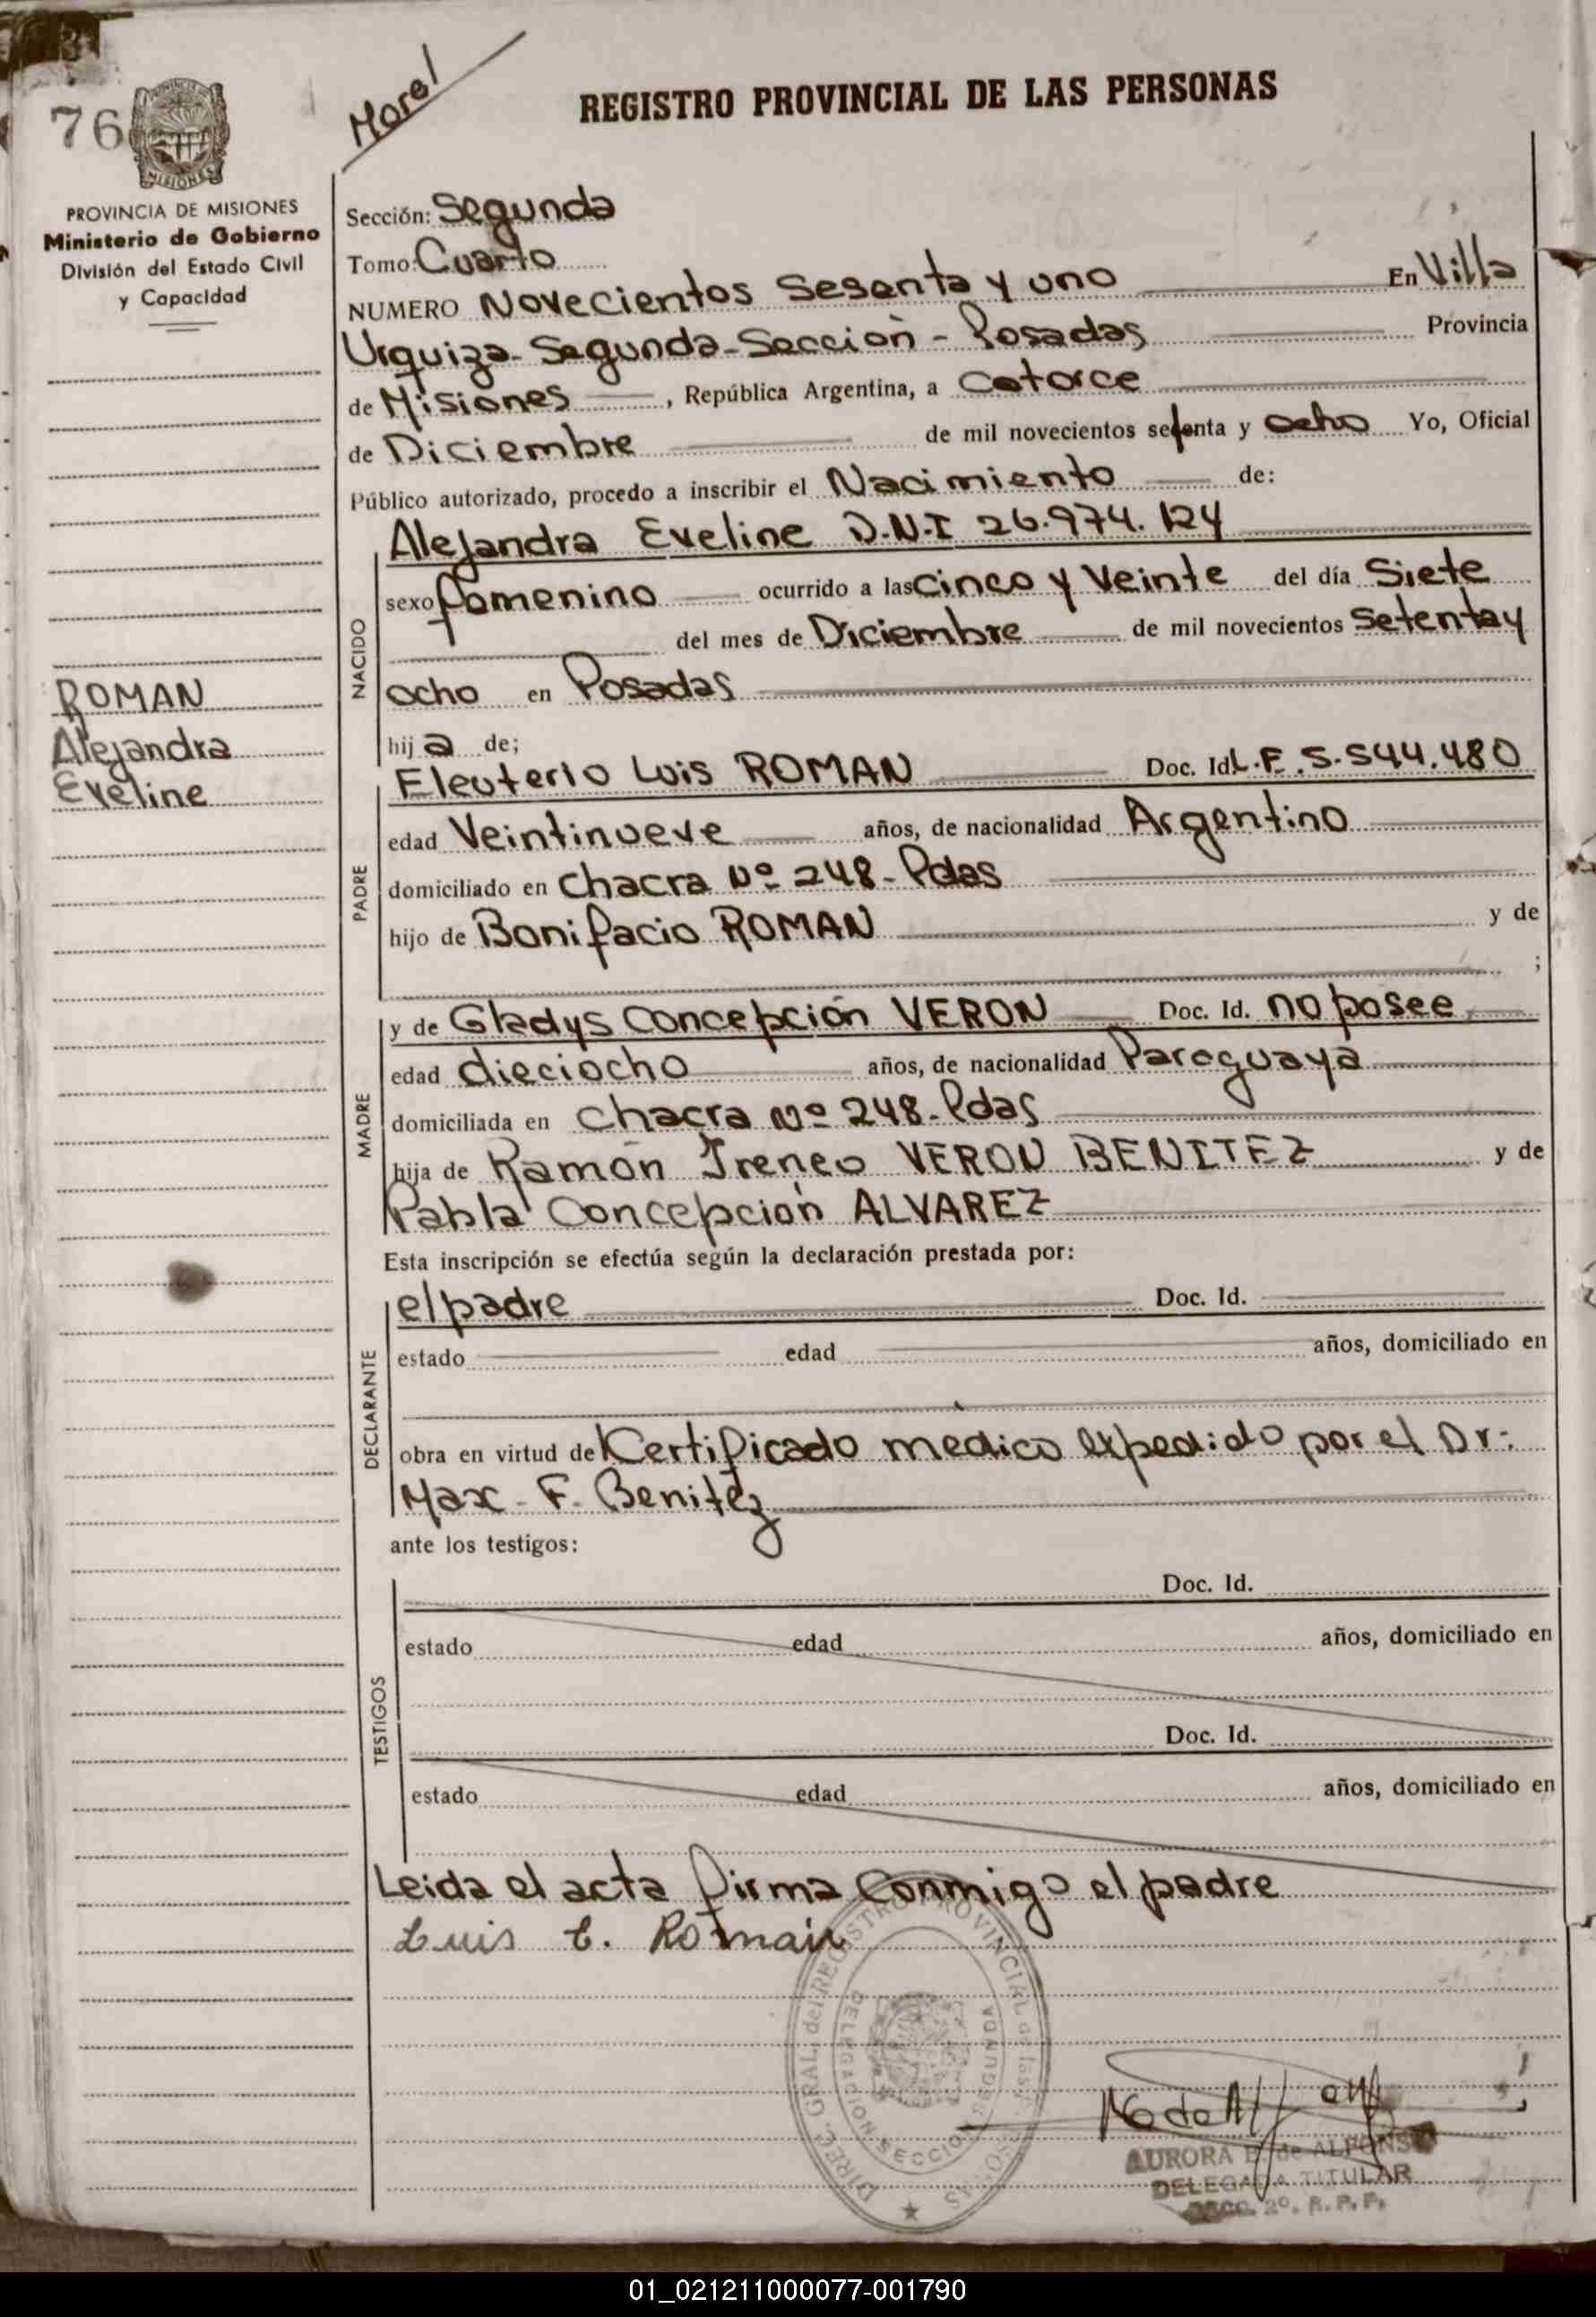 76
MISIONES
PROVINCIA DE MISIONES
Ministerio de Gobierno
División del Estado Civil
y Capacidad
ROMAN
Alejandra
Eveline
Morel
REGISTRO PROVINCIAL DE LAS PERSONAS
Sección: Segunda
Tomo: Cuarto
NUMERO Novecientos Sesenta y uno En Villa
Urquiza - Segunda - Sección - Posadas Provincia
de Misiones, República Argentina, a Catorce
de Diciembre de mil novecientos setenta y ocho Yo, Oficial
Público autorizado, procedo a inscribir el Nacimiento de:
NACIDO
Alejandra Eveline D.N.I 26.974.124
sexo femenino ocurrido a las Cinco y Veinte del día Siete
del mes de Diciembre de mil novecientos Setenta y
ocho en Posadas
hij a de;
PADRE
Eleuterio Luis ROMAN Doc. Id. L.E. 5.544.480
edad Veintinueve años, de nacionalidad Argentino
domiciliado en Chacra Nº 248 - Pdas
hijo de Bonifacio ROMAN y de
;
MADRE
y de Gladys Concepción VERON Doc. Id. no posee
edad dieciocho años, de nacionalidad Paraguaya
domiciliada en Chacra Nº 248 - Pdas
hija de Ramón Ireneo VERON BENITEZ y de
Pabla Concepción ALVAREZ
Esta inscripción se efectúa según la declaración prestada por:
DECLARANTE
el padre Doc. Id.
estado edad años, domiciliado en
obra en virtud de Certificado medico expedido por el Dr.
Max - F. Benitez
ante los testigos:
TESTIGOS
Doc. Id.
estado edad años, domiciliado en
Doc. Id.
estado edad años, domiciliado en
Leida el acta firma conmigo el padre
Luis E. Roman
DIREC. GRAL. del REGISTRO PROVINCIAL de las PERSONAS
DELEGACION SECCION SEGUNDA
AURORA B. de ALFONSO
DELEGADA TITULAR
SECC. 2º. R.P.P.
01_021211000077-001790